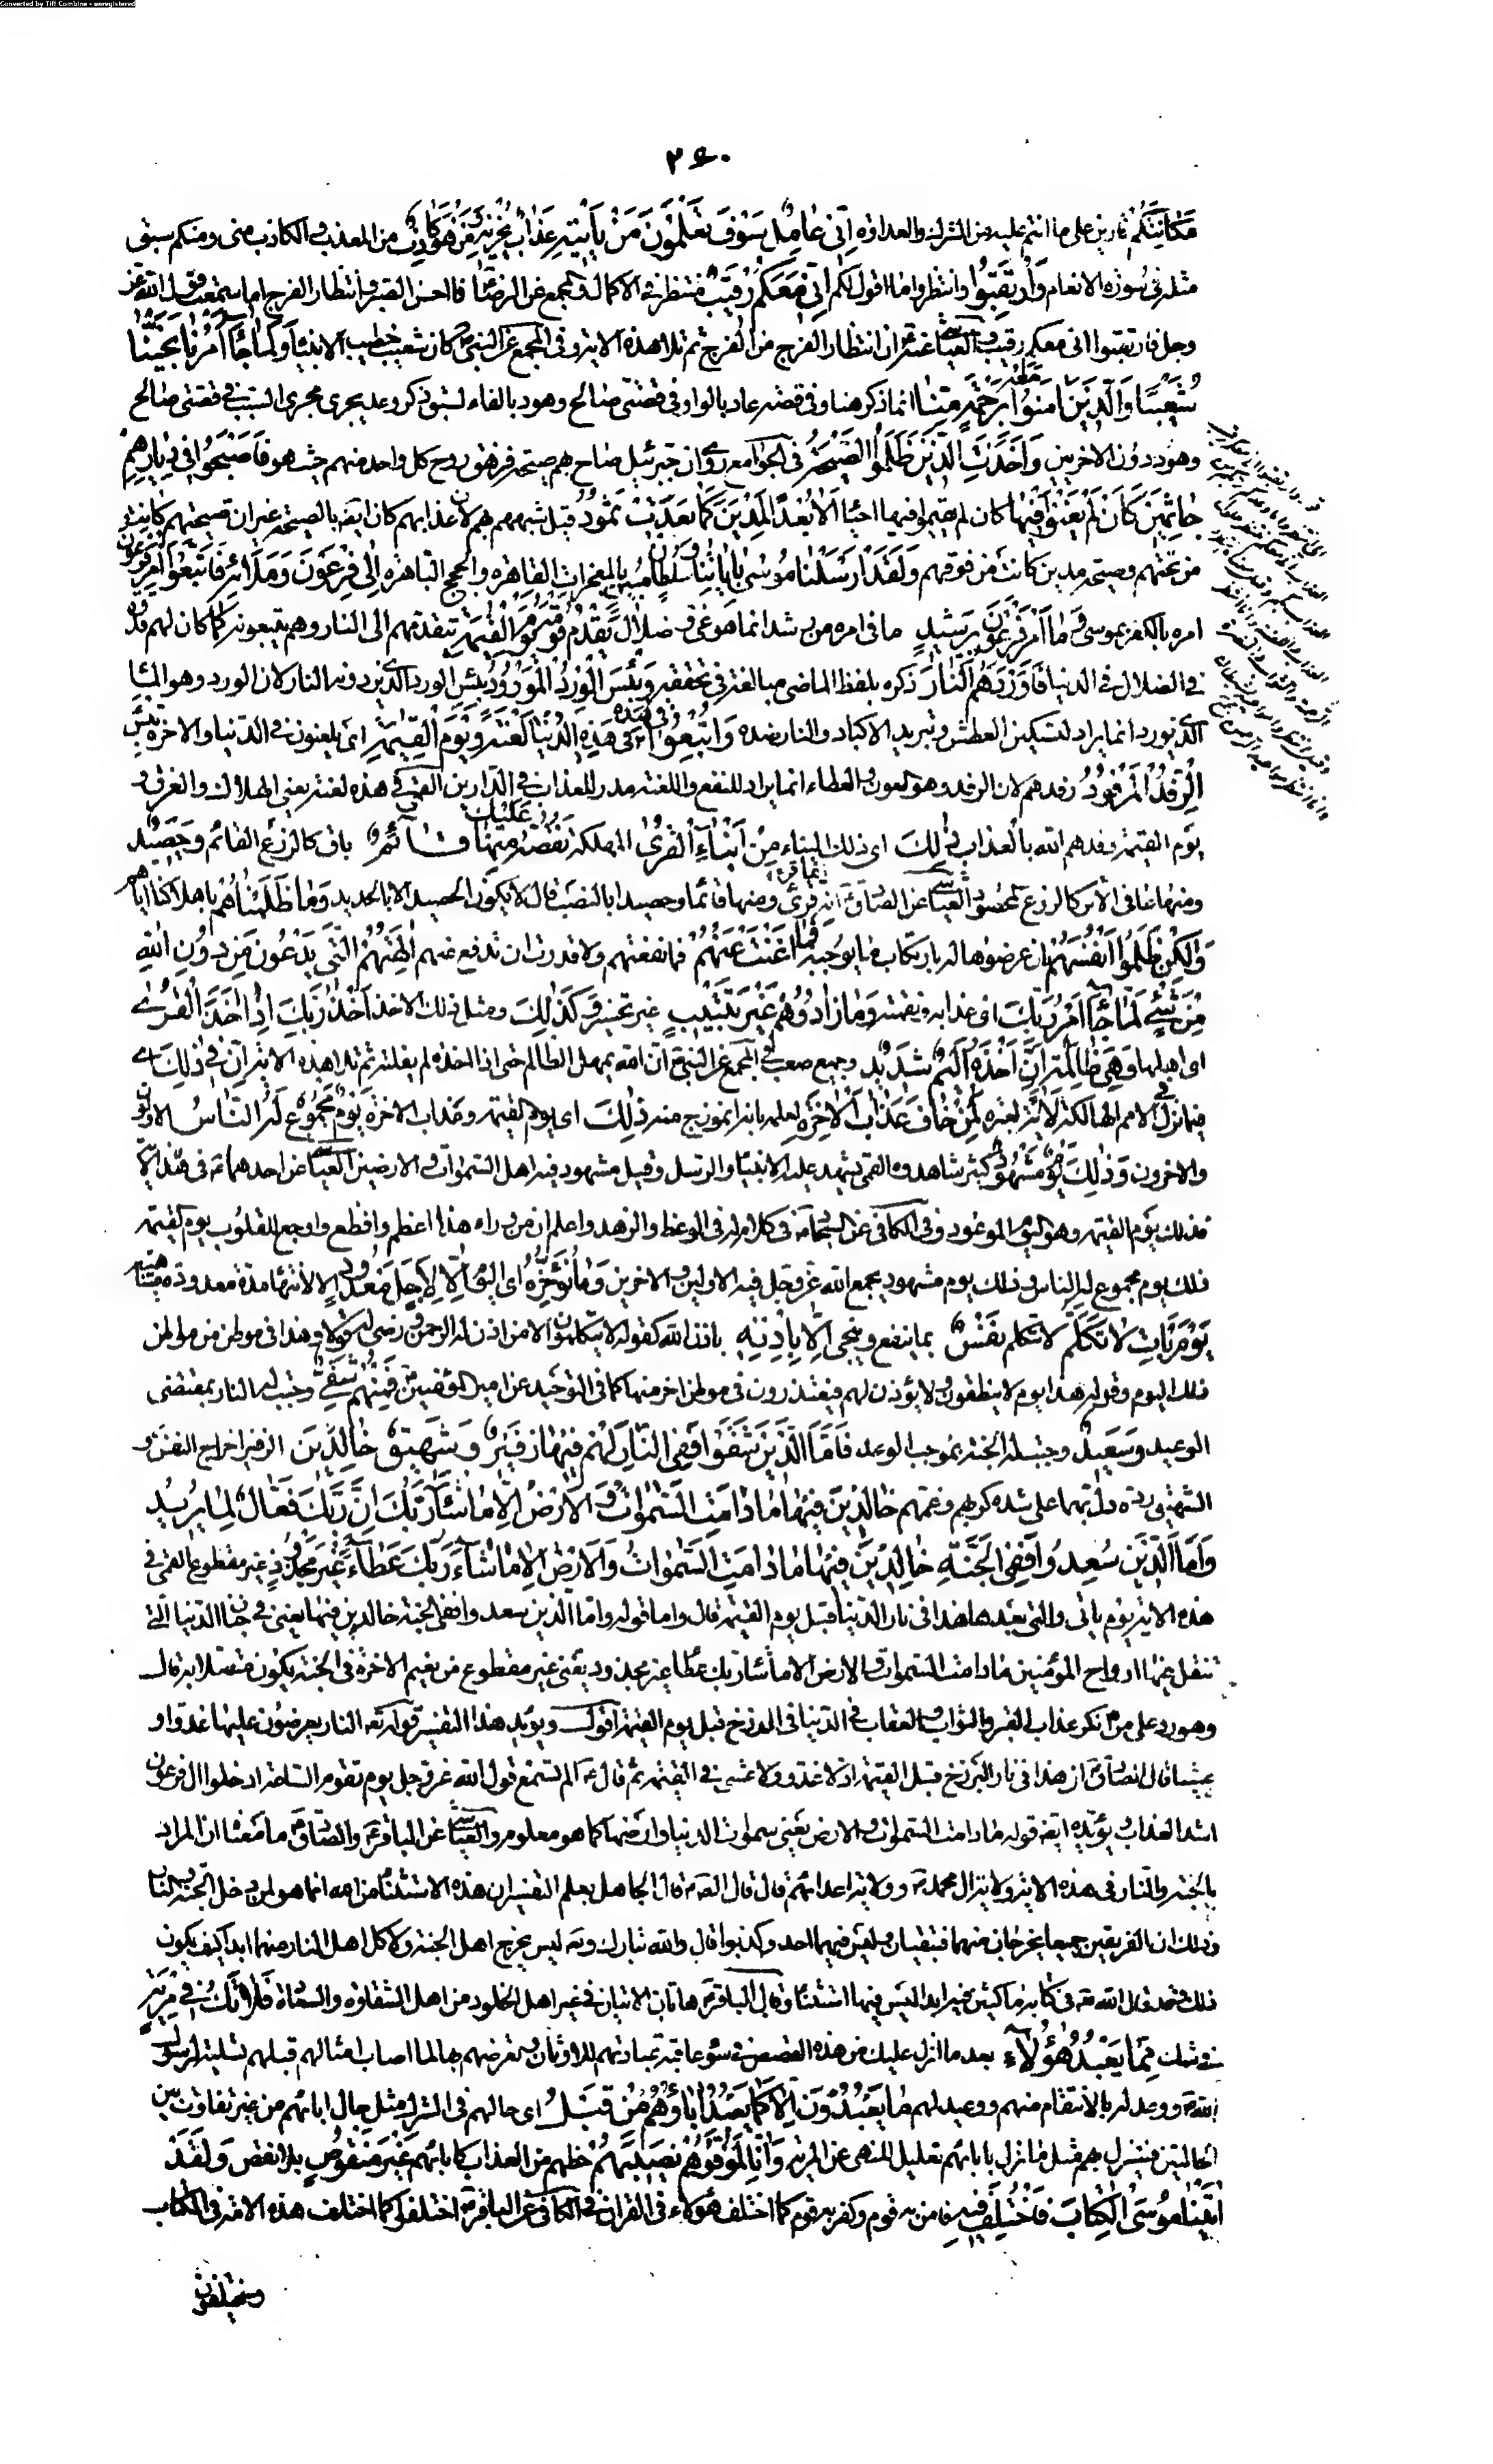 Converted by Tiff Combine - unregistered
٣٤٠
مَكَانَتِكُمْ قارين على ما انتم عليه من الشرك والعداوة اِنِّي عَامِلٌ سَوْفَ تَعْلَمُونَ مَنْ يَأْتِيهِ عَذَابٌ يُخْزِيهِ وَمَنْ هُوَ كَاذِبٌ من المعذب والكاذب منى ومنكم سبق
مثله فى سورة الانعام وَارْتَقِبُوا وانتظروا ما اقول لكم اِنِّي مَعَكُمْ رَقِيبٌ منتظر فى الاكمال والمجمع عن الرضا ما احسن الصبر وانتظار الفرج اما سمعت قول الله عز
وجل فارتقبوا انى معكم رقيب والعياشى عنه ان انتظار الفرج من الفرج ثم تلا هذه الاية وفى المجمع عن النبى كان شعيب خطيب الانبياء وَلَمَّا جَاءَ اَمْرُنَا نَجَّيْنَا
شُعَيْبًا وَالَّذِينَ اٰمَنُوا مَعَهُ بِرَحْمَةٍ مِنَّا انما ذكر هنا وفى قصة عاد بالواو وفى قصتى صالح وهود بالفاء لسبق ذكر وعد يجرى مجرى السبب فى قصتى صالح
وهود دون الاخرين وَاَخَذَتِ الَّذِينَ ظَلَمُوا الصَّيْحَةُ فى الجوامع روى ان جبرئيل صاح بهم صيحة فزهق روح كل واحد منهم حيث هو فَاَصْبَحُوا فِي دِيَارِهِمْ
جَاثِمِينَ كَاَنْ لَمْ يَغْنَوْا فِيهَا كان لم يقيموا فيها احياء اَلَا بُعْدًا لِمَدْيَنَ كَمَا بَعِدَتْ ثَمُودُ قيل شبههم بهم لان عذابهم كان ايضا بالصيحة غير ان صيحتهم كانت
من تحتهم وصيحة مدين كانت من فوقهم وَلَقَدْ اَرْسَلْنَا مُوسٰى بِاٰيَاتِنَا وَسُلْطَانٍ مُبِينٍ بالمعجزات القاهرة والحجج الباهرة اِلٰى فِرْعَوْنَ وَمَلَائِهِ فَاتَّبَعُوا اَمْرَ فِرْعَوْنَ
امره بالكفر بموسى وَمَا اَمْرُ فِرْعَوْنَ بِرَشِيدٍ ما فى امره من رشد انما هو غى وضلال يَقْدُمُ قَوْمَهُ يَوْمَ الْقِيٰمَةِ يتقدمهم الى النار وهم يتبعونه كما كان لهم قدوة
فى الضلال فى الدنيا فَاَوْرَدَهُمُ النَّارَ ذكره بلفظ الماضى مبالغة فى تحققه وَبِئْسَ الْوِرْدُ الْمَوْرُودُ بئس الورد الذى يردونه النار لان الورد وهو الماء
الذى يورد انما يراد لتسكين العطش وتبريد الاكباد والنار ضده وَاُتْبِعُوا فِي هٰذِهِ الدُّنْيَا لَعْنَةً وَيَوْمَ الْقِيٰمَةِ اى يلعنون فى الدنيا والاخرة بِئْسَ
الرِّفْدُ الْمَرْفُودُ رفدهم لان الرفد وهو العون والعطاء انما يراد للنفع واللعنة مدد للعذاب فى الدارين القمى فى هذه لعنة يعنى الهلاك والغرق و
يوم القيمة رفدهم الله بالعذاب ذٰلِكَ اى ذلك النباء مِنْ اَنْبَاءِ الْقُرٰى المهلكة نَقُصُّهُ عَلَيْكَ مِنْهَا قَائِمٌ باق كالزرع القائم وَحَصِيدٌ
ومنها عافى الاثر كالزرع المحصود العياشى عن الصادق انه قرئ فمنها قائما وحصيدا بالنصب قال لا يكون الحصيد الا بالحديد وَمَا ظَلَمْنَاهُمْ باهلاكنا اياهم
وَلٰكِنْ ظَلَمُوا اَنْفُسَهُمْ بان عرضوها له بارتكاب ما يوجبه فَمَا اَغْنَتْ عَنْهُمْ فما نفعتهم ولا قدرت ان تدفع عنهم اٰلِهَتُهُمُ الَّتِي يَدْعُونَ مِنْ دُونِ اللّٰهِ
مِنْ شَيْءٍ لَمَّا جَاءَ اَمْرُ رَبِّكَ اى عذابه ونقمته وَمَا زَادُوهُمْ غَيْرَ تَتْبِيبٍ غير تخسير وَكَذٰلِكَ ومثل ذلك الاخذ اَخْذُ رَبِّكَ اِذَا اَخَذَ الْقُرٰى
اى اهلها وَهِيَ ظَالِمَةٌ اِنَّ اَخْذَهُ اَلِيمٌ شَدِيدٌ وجيع صعب فى المجمع عن النبى ان الله يمهل الظالم حتى اذا اخذه لم يفلته ثم تلا هذه الاية اِنَّ فِي ذٰلِكَ اى
فيما نزل فى الامم الهالكة لَاٰيَةً لعبرة لِمَنْ خَافَ عَذَابَ الْاٰخِرَةِ لعلمه بانه انموزج منه ذٰلِكَ اى يوم القيمة وعذاب الاخرة يَوْمٌ مَجْمُوعٌ لَهُ النَّاسُ الاولون
والاخرون وَذٰلِكَ يَوْمٌ مَشْهُودٌ كثير شاهدوه القمى يشهد عليه الانبياء والرسل وقيل مشهود فيه اهل السموات والارضين العياشى عن احدهما فى هذه الاية
فذلك يوم القيمة وهو اليوم الموعود وفى الكافى عن السجاد فى كلام له فى الوعظ والزهد واعلم ان من وراء هذا اعظم وافظع واوجع للقلوب يوم القيمة
ذلك يوم مجموع له الناس وذلك يوم مشهود يجمع الله عز وجل فيه الاولين والاخرين وَمَا نُؤَخِّرُهُ اى اليوم اِلَّا لِاَجَلٍ مَعْدُودٍ الا لانتهاء مدة معدودة متناهية
يَوْمَ يَأْتِ لَا تَكَلَّمُ لا تتكلم نَفْسٌ بما ينفع وينجى اِلَّا بِاِذْنِهِ باذن الله كقوله لا يتكلمون الا من اذن له الرحمن ورضى له قولا وهذا فى موطن من مواطن
ذلك اليوم وقوله هذا يوم لا ينطقون ولا يؤذن لهم فيعتذرون فى موطن اخر منها كما فى التوحيد عن امير المؤمنين فَمِنْهُمْ شَقِيٌّ وجبت له النار بمقتضى
الوعيد وَسَعِيدٌ وجبت له الجنة بموجب الوعد فَاَمَّا الَّذِينَ شَقُوا فَفِي النَّارِ لَهُمْ فِيهَا زَفِيرٌ وَشَهِيقٌ خَالِدِينَ الزفير اخراج النفس و
الشهيق رده دل بهما على شدة كربهم وغمهم خَالِدِينَ فِيهَا مَا دَامَتِ السَّمٰوَاتُ وَالْاَرْضُ اِلَّا مَا شَاءَ رَبُّكَ اِنَّ رَبَّكَ فَعَّالٌ لِمَا يُرِيدُ
وَاَمَّا الَّذِينَ سُعِدُوا فَفِي الْجَنَّةِ خَالِدِينَ فِيهَا مَا دَامَتِ السَّمٰوَاتُ وَالْاَرْضُ اِلَّا مَا شَاءَ رَبُّكَ عَطَاءً غَيْرَ مَجْذُوذٍ غير مقطوع القمى فى
هذه الاية يوم ياتى والتى بعدها هذا فى نار الدنيا قبل يوم القيمة قال واما قوله واما الذين سعدوا ففى الجنة خالدين فيها يعنى فى جنان الدنيا التى
تنقل اليها ارواح المؤمنين ما دامت السموات والارض الا ما شاء ربك عطاء غير مجذوذ يعنى غير مقطوع من نعيم الاخرة فى الجنة يكون متصلا به قال
وهو رد على من انكر عذاب القبر والثواب والعقاب فى الدنيا فى البرزخ قبل يوم القيمة اقول ويؤيد هذا التفسير قوله تعالى النار يعرضون عليها غدوا و
عشيا قال الصادق ان هذا فى نار البرزخ قبل القيمة اذ لا غدو ولا عشى فى القيمة ثم قال الم تسمع قول الله عز وجل يوم تقوم الساعة ادخلوا ال فرعون
اشد العذاب ويؤيده ايضا قوله ما دامت السموات والارض يعنى سموات الدنيا وارضها كما هو معلوم والعياشى عن الباقر والصادق ما معناه ان المراد
بالجنة والنار فى هذه الاية ولاية ال محمد وولاية اعدائهم قال قال الصادق قال الجاهل بعلم التفسير ان هذه الاستثناء من الله انما هو لمن دخل الجنة والنار
وذلك ان الفريقين جميعا يخرجان منهما فتبقيان وليس فيهما احد وكذبوا قال والله تبارك وتعالى ليس يخرج اهل الجنة ولا كل اهل النار منهما ابدا كيف يكون
ذلك وقد قال الله تعالى فى كتابه ماكثين فيه ابدا ليس فيها استثناء وقال الباقر هاتان الايتان فى غير اهل الخلود من اهل الشقاوة والسعادة فَلَا تَكُ فِي مِرْيَةٍ
فى شك مِمَّا يَعْبُدُ هٰؤُلَاءِ بعد ما انزل عليك من هذه القصص فى سوء عاقبة عبادتهم للاوثان وتعرضهم بها لما اصاب امثالهم قبلهم تسلية لرسول
الله ووعد له بالانتقام منهم ووعيد لهم مَا يَعْبُدُونَ اِلَّا كَمَا يَعْبُدُ اٰبَاؤُهُمْ مِنْ قَبْلُ اى حالهم فى الشرك مثل حال ابائهم من غير تفاوت بين
الحالتين فينزل بهم مثل ما نزل بابائهم تعليل للنهى عن المرية وَاِنَّا لَمُوَفُّوهُمْ نَصِيبَهُمْ حظهم من العذاب كابائهم غَيْرَ مَنْقُوصٍ بلا نقص وَلَقَدْ
اٰتَيْنَا مُوسَى الْكِتَابَ فَاخْتُلِفَ فِيهِ فامن به قوم وكفر به قوم كما اختلف هؤلاء فى القران فى الكافى عن الباقر اختلفوا كما اختلف هذه الامة فى الكتاب
وسيختلفون